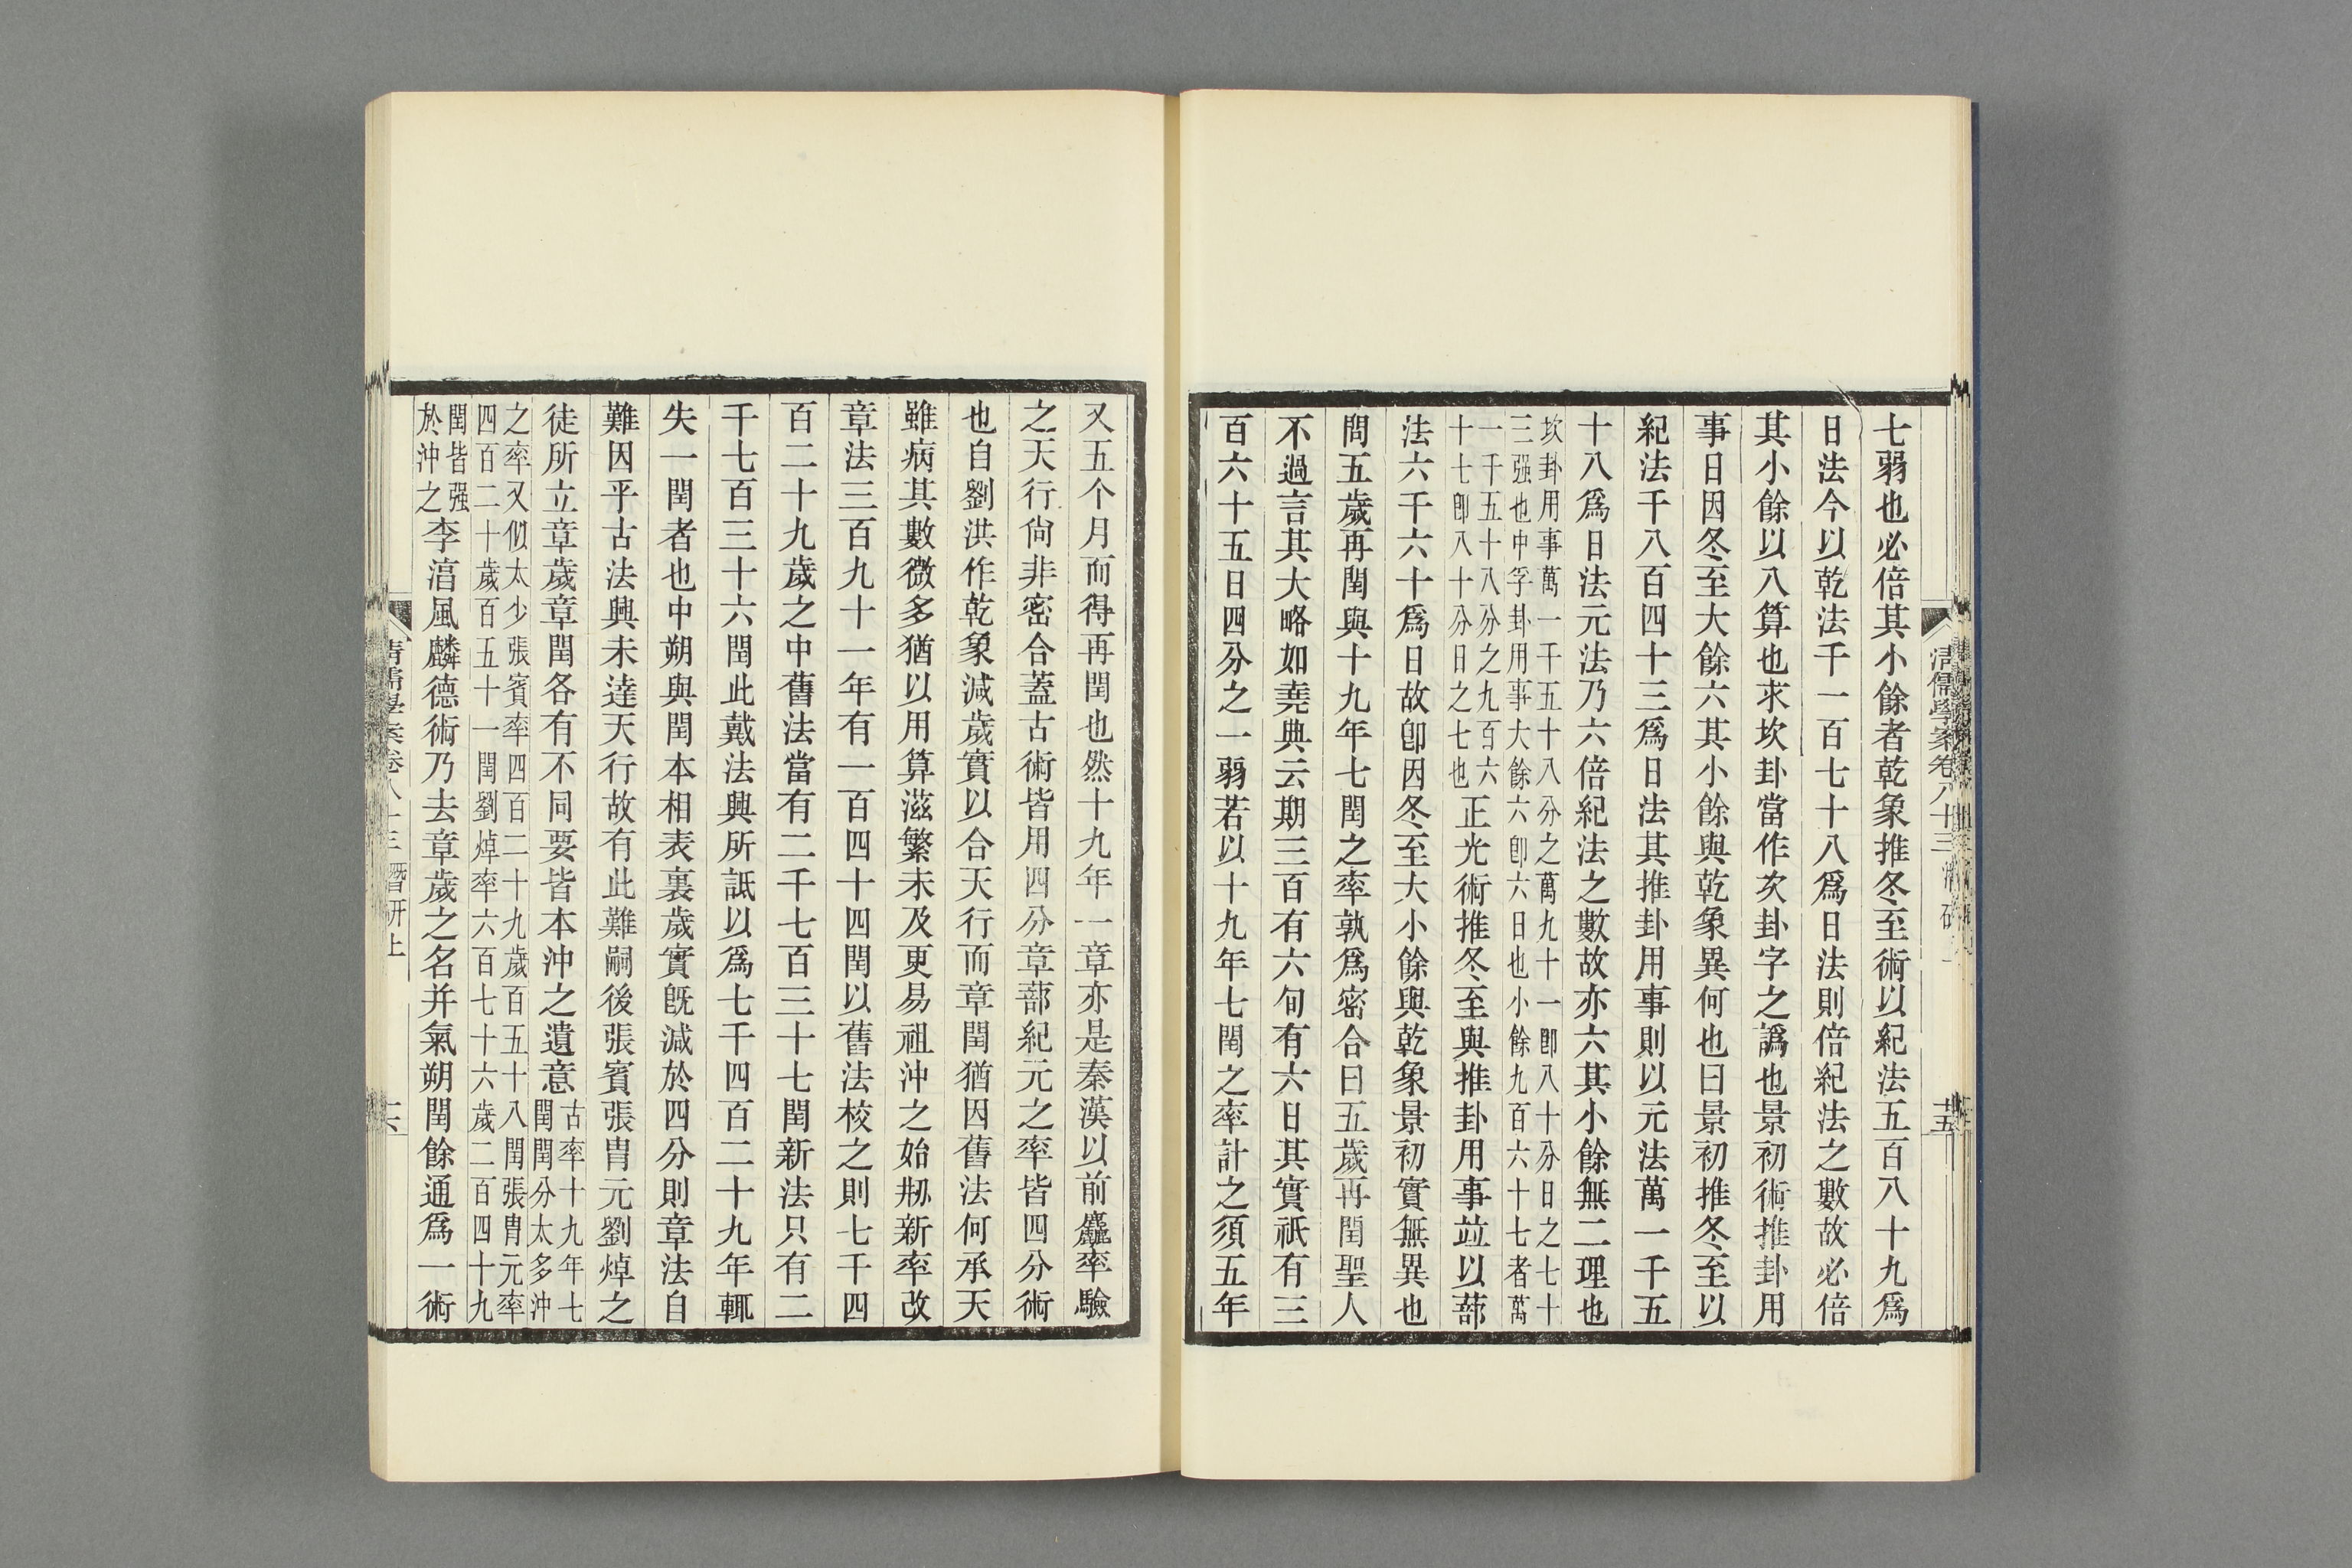 七弱也必倍其小餘者乾象推冬至術以紀法五百八十九爲
日法今以乾法千一百七十八爲日法則倍紀法之數故必倍
其小餘以入算也求坎卦當作次卦字之譌也景初術推卦用
事日因冬至大餘六其小餘與乾象異何也曰景初推冬至以
紀法千八百四十三爲日法其推卦用事則以元法萬一千五
十八爲日法元法乃六倍紀法之數故亦六其小餘無二理也
坎卦用事萬一千五十八分之萬九十一卽八十分日之七十
三强也中孚卦用事大餘六卽六日也小餘九百六十七者萬
一千五十八分之九百六
十七卽八十分日之七也
正光術推冬至與推卦用事竝以蔀
法六千六十爲日故卽因冬至大小餘與乾象景初實無異也
問五歲再閏與十九年七閏之率孰爲密合曰五歲再閏聖人
不過言其大略如堯典云期三百有六旬有六日其實祇有三
百六十五日四分之一弱若以十九年七閏之率計之須五年
清儒學案卷八十三
十五
又五个月而得再閏也然十九年一章亦是秦漢以前麤率驗
之天行尙非密合蓋古術皆用四分章蔀紀元之率皆四分術
也自劉洪作乾象減歲實以合天行而章閏猶因舊法何承天
雖病其數微多猶以用算滋繁未及更易祖沖之始刱新率改
章法三百九十一年有一百四十四閏以舊法校之則七千四
百二十九歲之中舊法當有二千七百三十七閏新法只有二
千七百三十六閏此戴法興所詆以爲七千四百二十九年輒
失一閏者也中朔與閏本相表裏歲實旣減於四分則章法自
難因乎古法興未達天行故有此難嗣後張賓張胄元劉焯之
徒所立章歲章閏各有不同要皆本沖之遺意
古率十九年七
閏閏分太多沖
之率又似太少張賓率四百二十九歲百五十八閏張胄元率
四百二十歲百五十一閏劉焯率六百七十六歲二百四十九
閏皆强
於沖之
李淳風麟德術乃去章歲之名并氣朔閏餘通爲一術
清儒學案卷八十三 潛研上